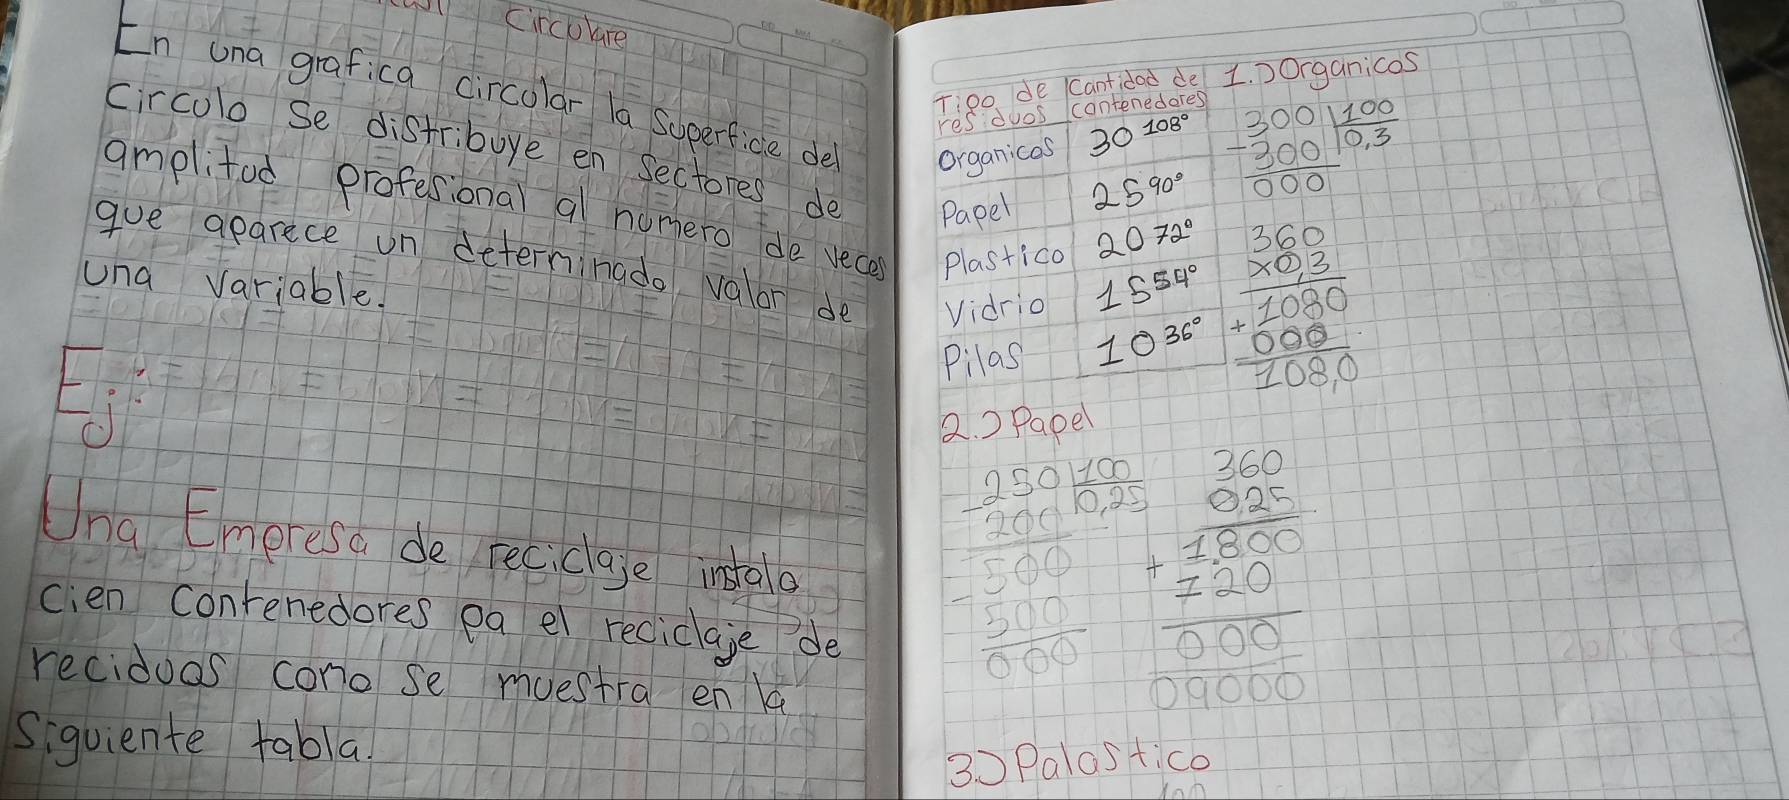 Circulare
En una grafica circular la superficie del
circulo se distribuye en sectores de
amplitud profesional al numero de veces
que aparece un determinado valor de
una variable.
Ej:
Una Empresa de reciclaje instalo
cien contenedores pa el reciclaje de
reciduos como se muestra en la
siguiente tabla.
Tipo de residuos Cantidad de contenedores
Organicos 30 108°
Papel 25 90°
Plastico 20 72°
Vidrio 15 54°
Pilas 10 36°
1.) Organicos
300 100
-300 0,3
000
360
x0,3
1080
+ 000
108,0
2.) Papel
250 100
-200 0,25
500
- 500
000
360
025
1800
+ 720
000
09000
3.) Palastico